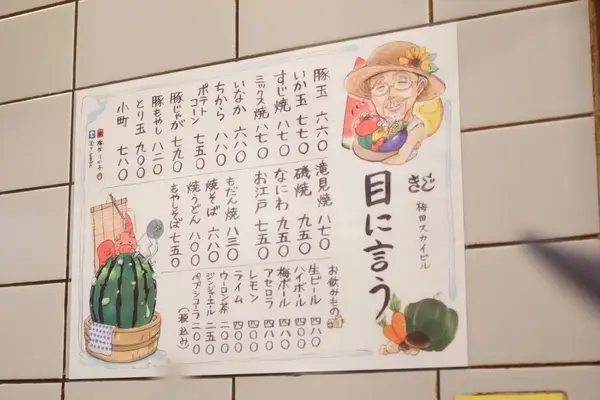 きじ
梅田スカイビル
目に言う
豚玉 六六〇
いか玉 七七〇
すじ焼 八七〇
ミックス焼 八七〇
いなか 六八〇
ちから 八八〇
ポテトコーン 七五〇
豚じゃが 七九〇
豚もやし 八二〇
とり玉 九〇〇
小町 七八〇
滝見焼 八七〇
磯焼 九五〇
なにわ 九五〇
お江戸 七五〇
もだん焼 八三〇
焼そば 六八〇
焼うどん 八〇〇
もやしそば 七五〇
お飲みもの
生ビール 四八〇
ハイボール 四〇〇
梅ボール 四八〇
アセロラ 四八〇
レモン 四〇〇
ライム 四〇〇
ウーロン茶 二〇〇
ジンジャエール 二五〇
ペプシコーラ 二〇〇
(税込み)